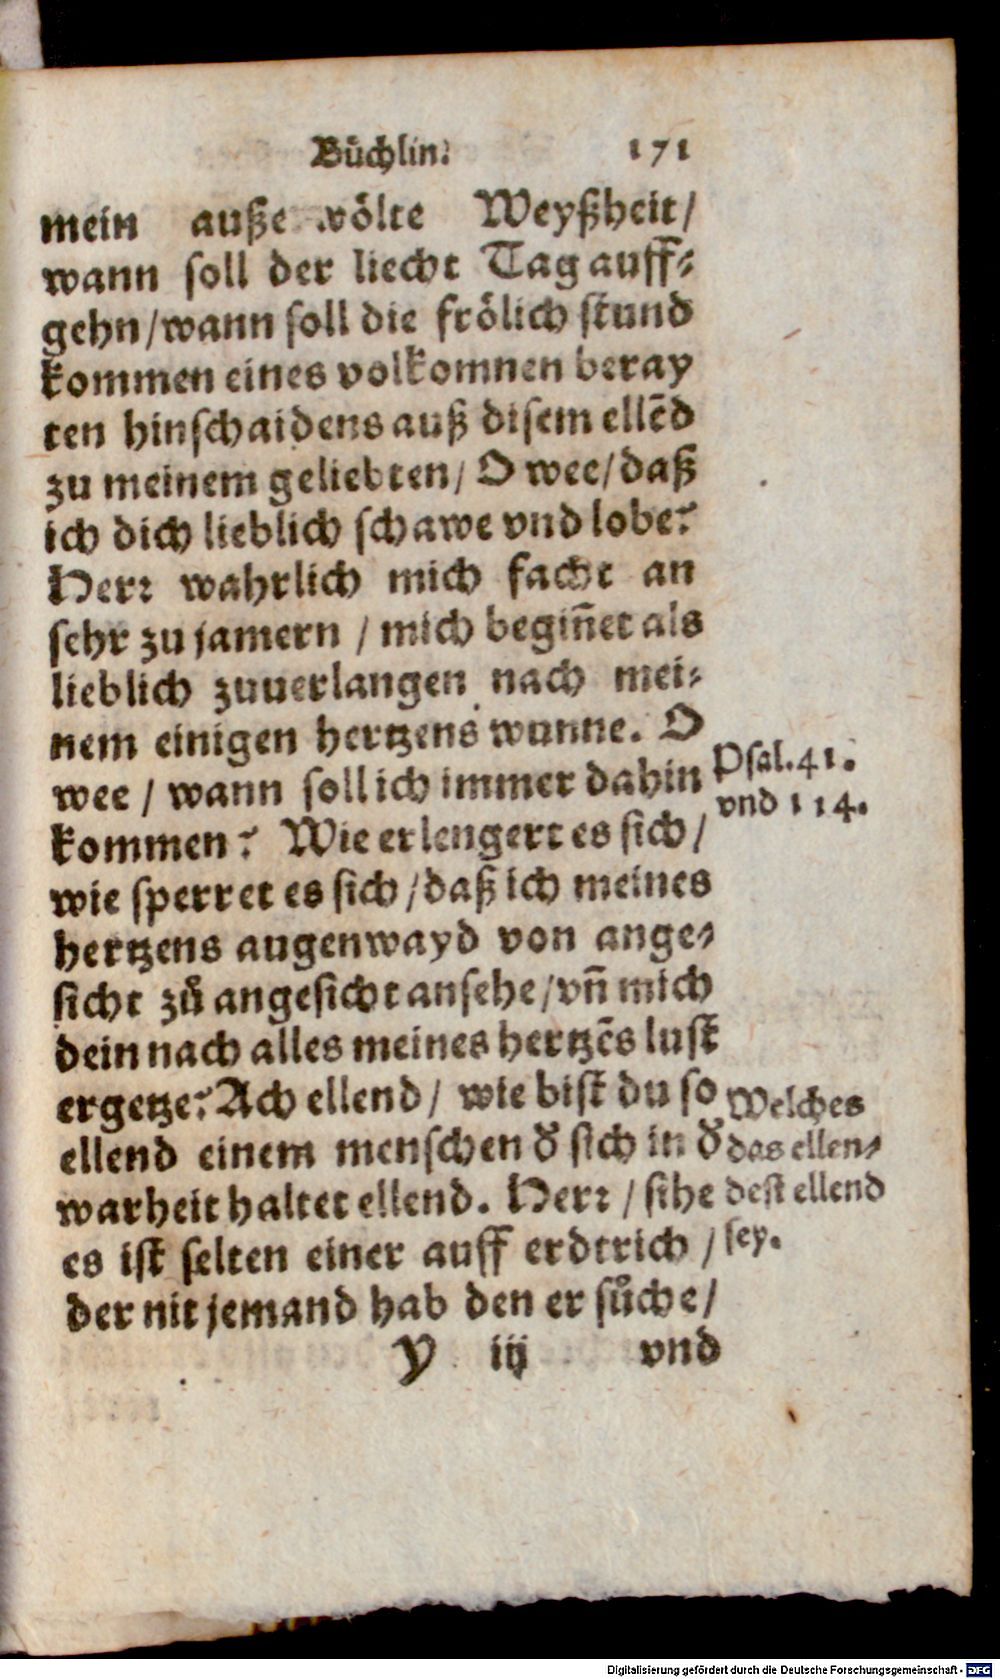 Büchlin. 171
mein auße wölte Weyßheit/
wann soll der liecht Tag auff-
gehn/wann soll die frölich stund
kommen eines volkomnen beray
ten hinschaidens auß disem ellēd
zu meinem geliebten/ O wee/daß
ich dich lieblich schawe vnd lobe?
Herr wahrlich mich facht an
sehr zu jamern / mich begiñet als
lieblich zuuerlangen nach mei-
nem einigen hertzens wunne. O
wee / wann soll ich immer dahin
kommen? Wie erlengert es sich/
wie sperret es sich/daß ich meines
hertzens augenwayd von ange-
sicht zů angesicht ansehe/vñ mich
dein nach alles meines hertzēs lust
ergetze? Ach ellend/ wie bist du so
ellend einem menschen ď sich in ď
warheit haltet ellend. Herr / sihe
es ist selten einer auff erdtrich /
der nit jemand hab den er sůche/
Y iij vnd
Psal.41.
vnd 114.
Welches
das ellen-
dest ellend
sey.
Digitalisierung gefördert durch die Deutsche Forschungsgemeinschaft - DFG